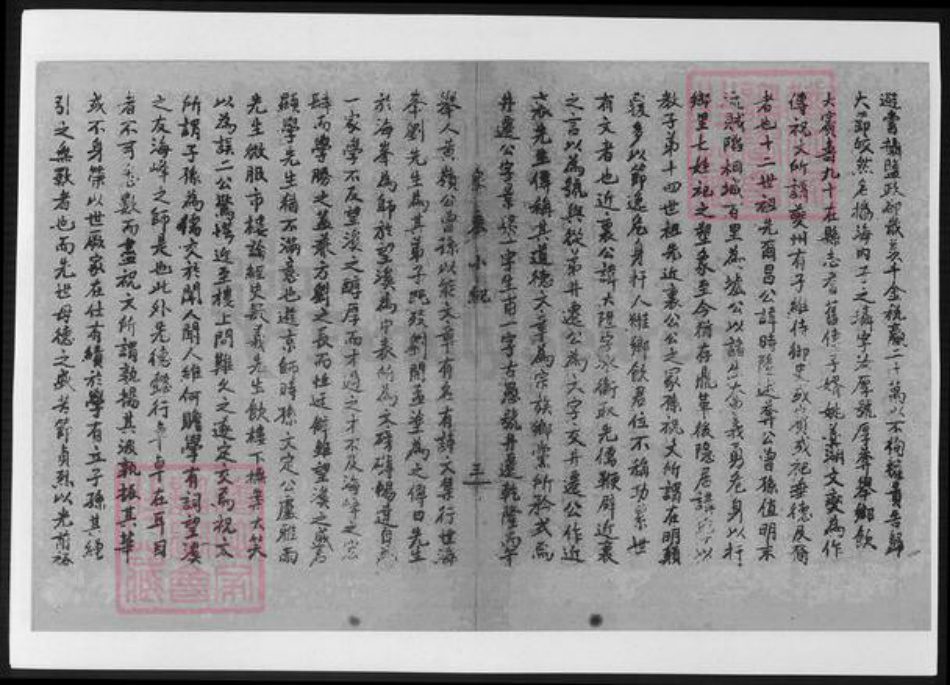 避嘗攝鹽政卻歲羨千金減羸二十萬以不拘權貴告歸
大節皎然名播海內子之璘字汝厚號厚菴舉鄉飲
大賓壽九十在縣志耆舊傳子婿姚姜湖文燮為作
傳祝文所謂夔州有子維侍御史或嘗或祀垂德反裔
者也十二世祖先爾昌公諱時隆述菴公曾孫值明末
流賊陷桐城百里為墟公以諸生奮義勇危身以行
鄉里七姓祀之塑象至今猶存鼎革後隱居講學以
教子弟十四世祖先近裏公公之冢孫祝文所謂在明顯
復多以節選危身行人維鄉飲君位不稱功象世
有文者也近裏公諱大陞字冰衡取先儒鞭辟近裏
之言以為號與從弟井遷公為文字交井遷公作近
裏先生傳稱其道德文章為宗族鄉黨所矜式焉
井遷公字景梁一字生甫一字古愚號井遷乾隆丙午
家乘小紀
三
舉人黃嶺公曾孫以能文章有名有詩文集行世海
峯劉先生為其弟子既歿劉開孟塗為之傳曰先生
於海峯為師於望溪為中表所為文磅礴暢達自成
一家學不及望溪之醇厚而才過之才不及海峰之宏
肆而學勝之蓋兼方劉之長而性迂僻雖望溪之盛名
顯學先生猶不滿意也遊京師時孫文定公盧雅雨
先生微服市樓論經史數義先生飲樓下撫案大笑
以為誤二公驚愕近至樓上問難久之遂定交焉祝文
所謂子孫為儒文於聞人聞人維何瞻學有詞望溪
之友海峰之師是也此外先德懿行卓卓在耳目
者不可悉數而盡祝文所謂孰揚其波孰振其華
或不身榮以世厥家在仕有績於學有立子孫其繩
引之無斁者也而先世母德之盛苦節貞烈以光前裕